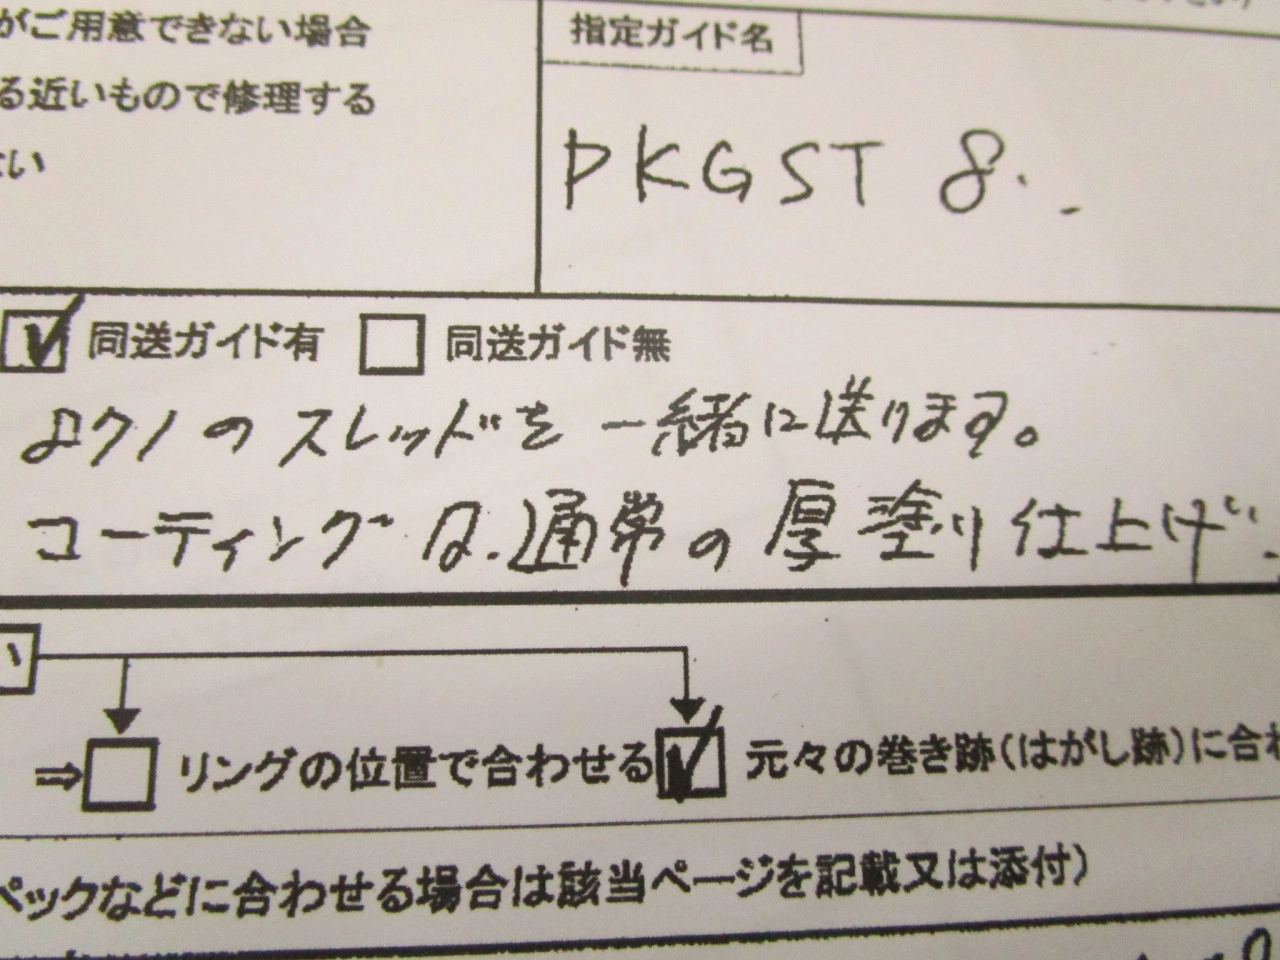 がご用意できない場合
指定ガイド名
る近いもので修理する
PKGST 8.
ない
同送ガイド有 同送ガイド無
のスレッドを一緒に送ります。
コーティングは、通常の厚塗り仕上げ
い
⇒ リングの位置で合わせる 元々の巻き跡(はがし跡)に合わ
ペックなどに合わせる場合は該当ページを記載又は添付)